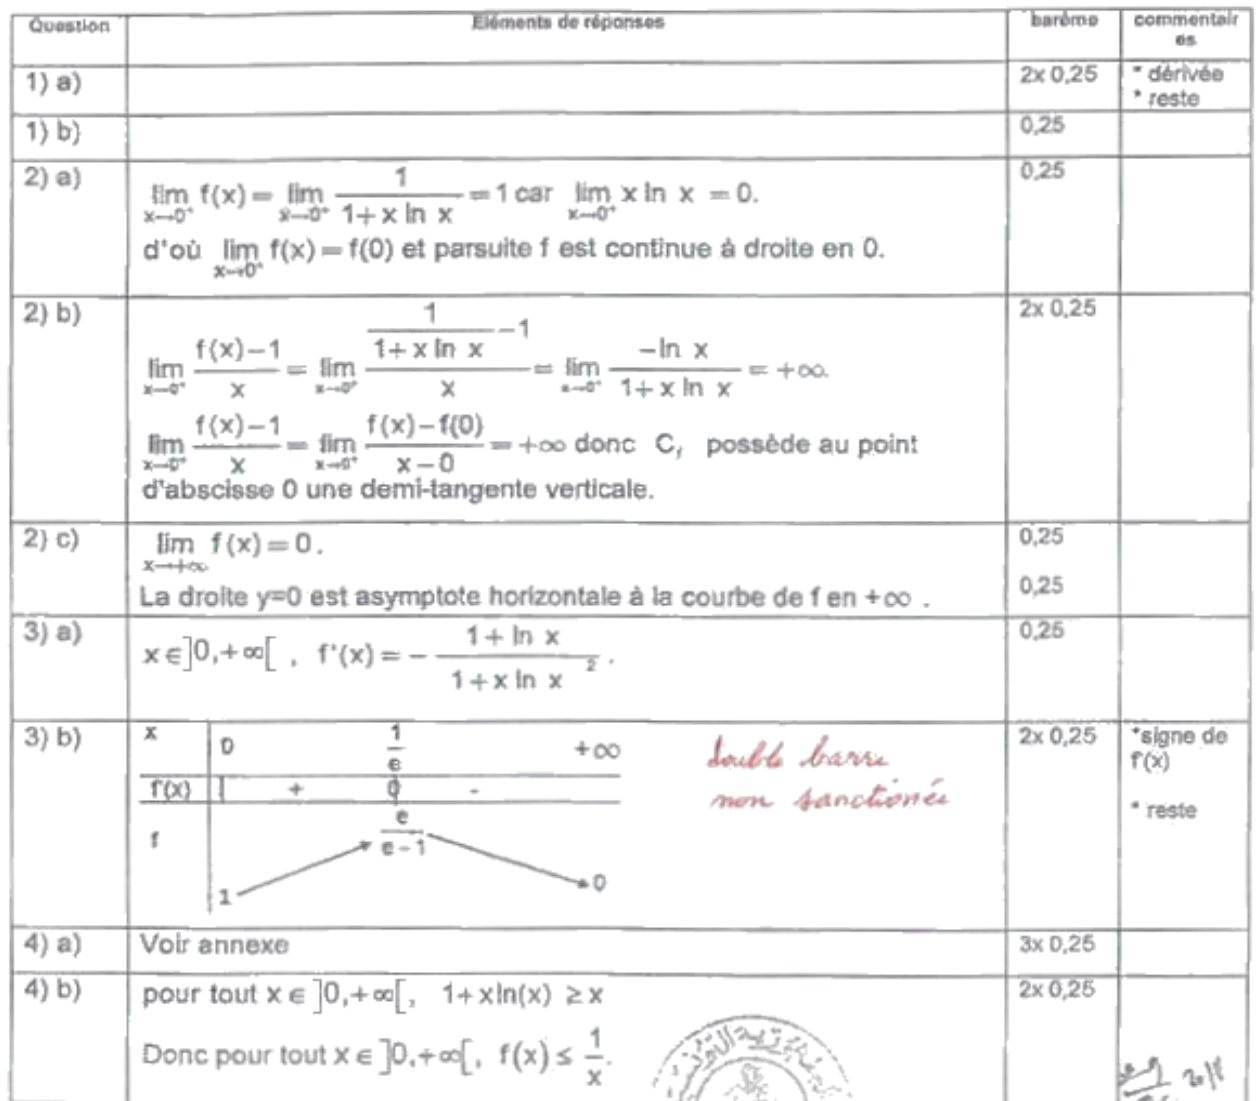 Question Eléments de réponses barème commentair
es
1) a) 2x 0,25 * dérivée
* reste
1) b) 0,25
2) a) lim x→0⁺ f(x) = lim x→0⁺ 1/(1+x ln x) = 1 car lim x→0⁺ x ln x = 0. 0,25
d'où lim x→0⁺ f(x) = f(0) et parsuite f est continue à droite en 0.
2) b) lim x→0⁺ (f(x)−1)/x = lim x→0⁺ (1/(1+x ln x) −1)/x = lim x→0⁺ (−ln x)/(1+x ln x) = +∞. 2x 0,25
lim x→0⁺ (f(x)−1)/x = lim x→0⁺ (f(x)−f(0))/(x−0) = +∞ donc C_f possède au point
d'abscisse 0 une demi-tangente verticale.
2) c) lim x→+∞ f(x) = 0. 0,25
La droite y=0 est asymptote horizontale à la courbe de f en +∞ . 0,25
3) a) x ∈ ]0,+∞[ , f'(x) = − (1+ ln x)/(1+x ln x ²) . 0,25
3) b) x 0 1/e +∞ 2x 0,25 *signe de
f'(x)
double barre
non sanctionée
f'(x) + 0 -
* reste
f e/(e-1)
1 0
4) a) Voir annexe 3x 0,25
4) b) pour tout x ∈ ]0,+∞[, 1+xln(x) ≥ x 2x 0,25
Donc pour tout x ∈ ]0,+∞[, f(x) ≤ 1/x.